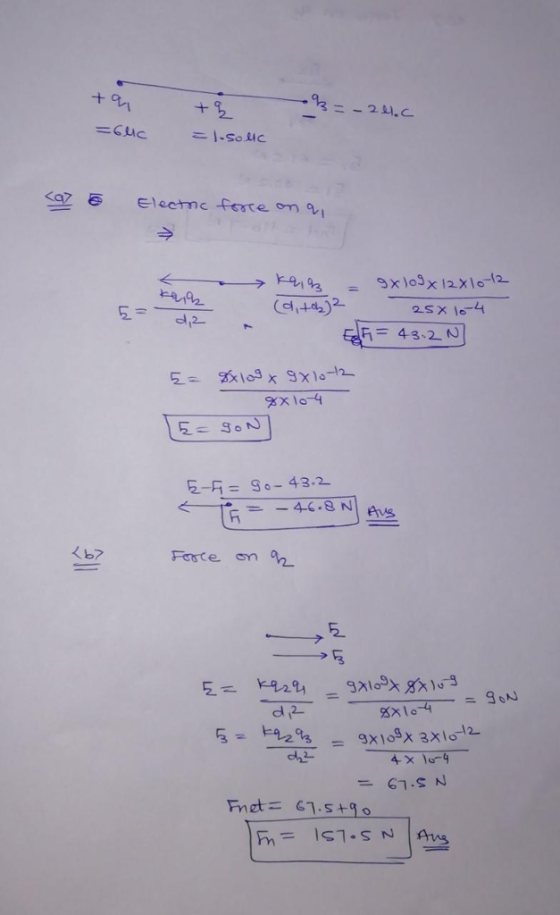 +q1 +q2 q3 = -2μ.C
=6μC =1.50μC
<a> Electric force on q1
⇒
F2 = kq1q2/d1² kq1q3/(d1+d2)² = 9×10⁹×12×10⁻¹²/25×10⁻⁴
F1 = 43.2 N
F2 = 9×10⁹ × 9×10⁻¹²/9×10⁻⁴
F2 = 90N
F2-F1 = 90-43.2
F1 = -46.8 N Ans
<b> Force on q2
F2
F3
F2 = kq2q1/d1² = 9×10⁹×9×10⁻⁹/9×10⁻⁴ = 90N
F3 = kq2q3/d2² = 9×10⁹×3×10⁻¹²/4×10⁻⁴
= 67.5 N
Fnet = 67.5+90
Fn = 157.5 N Ans